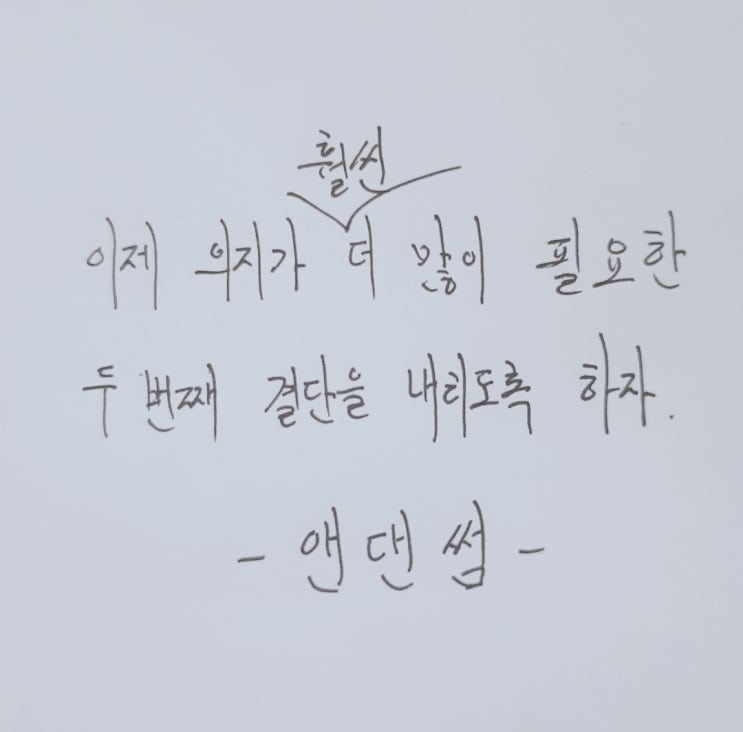 훨씬
이제 의지가 더 많이 필요한
두 번째 결단을 내리도록 하자.
- 앤 댄 썸 -